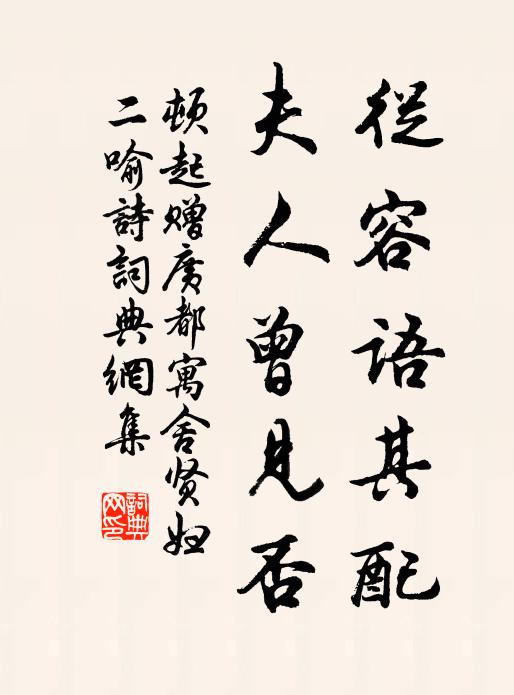 從容语其配
夫人曾見否
頓起赠廣都寓舍贤妇
二喻詩詞典網集
詞典
网印